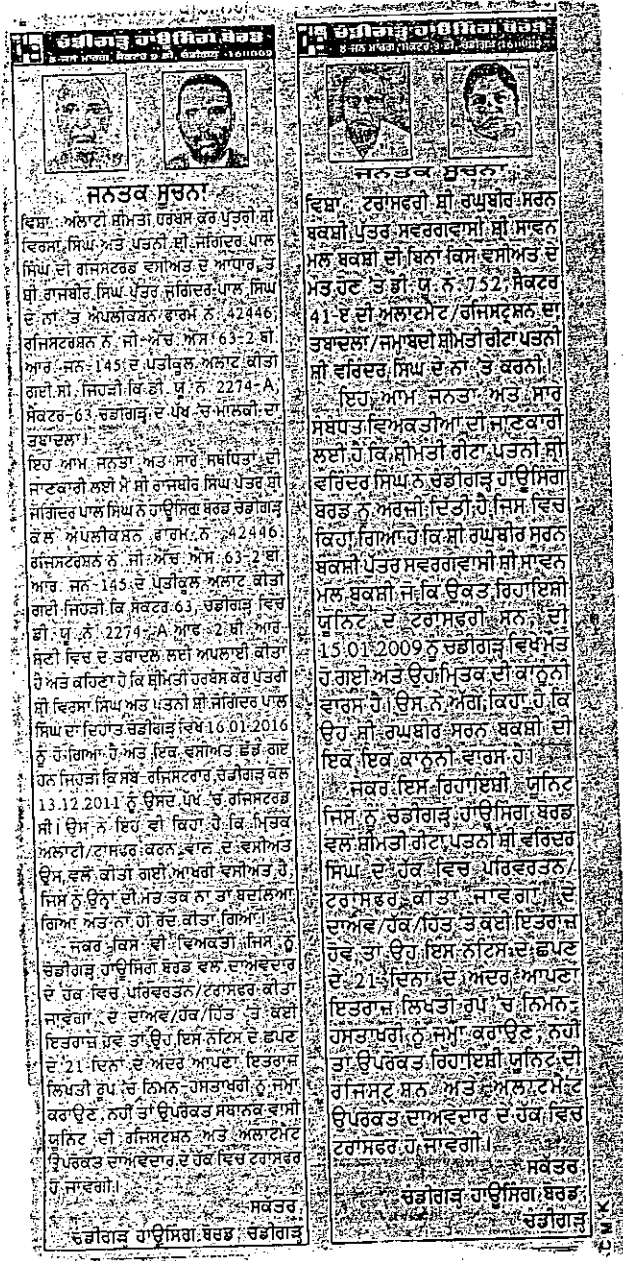 ਚੰਡੀਗੜ੍ਹ ਹਾਊਸਿੰਗ ਬੋਰਡ
8-ਜਨ ਮਾਰਗ, ਸੈਕਟਰ 9 ਡੀ, ਚੰਡੀਗੜ੍ਹ -160009
ਜਨਤਕ ਸੂਚਨਾ
ਵਿਸ਼ਾ: ਅਲਾਟੀ ਸ਼੍ਰੀਮਤੀ ਹਰਬੰਸ ਕੌਰ ਪੁੱਤਰੀ ਸ਼੍ਰੀ
ਵਿਰਸਾ ਸਿੰਘ ਅਤੇ ਪਤਨੀ ਸ਼੍ਰੀ ਜਗਿੰਦਰ ਪਾਲ
ਸਿੰਘ ਦੀ ਰਜਿਸਟਰਡ ਵਸੀਅਤ ਦੇ ਆਧਾਰ 'ਤੇ
ਸ਼੍ਰੀ ਰਾਜਬੀਰ ਸਿੰਘ ਪੁੱਤਰ ਜਗਿੰਦਰ ਪਾਲ ਸਿੰਘ
ਦੇ ਨਾਂ 'ਤੇ ਅਪਲੀਕੇਸ਼ਨ ਫਾਰਮ ਨੰ. 42446,
ਰਜਿਸਟਰੇਸ਼ਨ ਨੰ. ਜੀ-ਐੱਚ ਐੱਸ 63-2 ਬੀ.
ਆਰ. ਜਨ-145 ਦੇ ਪ੍ਰਤੀਕੂਲ ਅਲਾਟ ਕੀਤਾ
ਗਈ ਸੀ, ਜਿਹੜੀ ਕਿ ਡੀ. ਯੂ. ਨੰ. 2274-A,
ਸੈਕਟਰ-63, ਚੰਡੀਗੜ੍ਹ ਦੇ ਪੱਖ 'ਚ ਮਾਲਕੀ ਦਾ
ਤਬਾਦਲਾ।
ਇਹ ਆਮ ਜਨਤਾ ਅਤੇ ਸਾਰੇ ਸਬੰਧਿਤਾਂ ਦੀ
ਜਾਣਕਾਰੀ ਲਈ ਮੈਂ ਸ਼੍ਰੀ ਰਾਜਬੀਰ ਸਿੰਘ ਪੁੱਤਰ ਸ਼੍ਰੀ
ਜਗਿੰਦਰ ਪਾਲ ਸਿੰਘ ਨੇ ਹਾਊਸਿੰਗ ਬੋਰਡ ਚੰਡੀਗੜ੍ਹ
ਕੋਲ ਅਪਲੀਕੇਸ਼ਨ ਫਾਰਮ ਨੰ. 42446,
ਰਜਿਸਟਰੇਸ਼ਨ ਨੰ. ਜੀ. ਐੱਚ. ਐੱਸ. 63-2 ਬੀ.
ਆਰ. ਜਨ-145 ਦੇ ਪ੍ਰਤੀਕੂਲ ਅਲਾਟ ਕੀਤੀ
ਗਈ ਜਿਹੜੀ ਕਿ ਸੈਕਟਰ 63, ਚੰਡੀਗੜ੍ਹ ਵਿਚ
ਡੀ. ਯੂ. ਨੰ. 2274-A ਆਫ 2 ਬੀ. ਆਰ.
ਸ਼੍ਰੇਣੀ ਵਿਚ ਦੇ ਤਬਾਦਲੇ ਲਈ ਅਪਲਾਈ ਕੀਤਾ
ਹੈ ਅਤੇ ਕਹਿਣਾ ਹੈ ਕਿ ਸ਼੍ਰੀਮਤੀ ਹਰਬੰਸ ਕੌਰ ਪੁੱਤਰੀ
ਸ਼੍ਰੀ ਵਿਰਸਾ ਸਿੰਘ ਅਤੇ ਪਤਨੀ ਸ਼੍ਰੀ ਜਗਿੰਦਰ ਪਾਲ
ਸਿੰਘ ਦਾ ਦਿਹਾਂਤ ਚੰਡੀਗੜ੍ਹ ਵਿਖੇ 16.01.2016
ਨੂੰ ਹੋ ਗਿਆ ਹੈ ਅਤੇ ਇਕ ਵਸੀਅਤ ਛੱਡ ਗਏ
ਹਨ ਜਿਹੜੀ ਕਿ ਸਬ-ਰਜਿਸਟਰਾਰ, ਚੰਡੀਗੜ੍ਹ ਕੋਲ
13.12.2011 ਨੂੰ ਉਸਦੇ ਪੱਖ 'ਚ ਰਜਿਸਟਰਡ
ਸੀ। ਉਸ ਨੇ ਇਹ ਵੀ ਕਿਹਾ ਹੈ ਕਿ ਮ੍ਰਿਤਕ
ਅਲਾਟੀ/ਟ੍ਰਾਂਸਫਰ ਕਰਨ ਵਾਲੇ ਦੇ ਵਸੀਅਤ
ਉਸ ਵਲੋਂ ਕੀਤੀ ਗਈ ਆਖਰੀ ਵਸੀਅਤ ਹੈ,
ਜਿਸ ਨੂੰ ਉਨ੍ਹਾਂ ਦੀ ਮੌਤ ਤਕ ਨਾ ਤਾਂ ਬਦਲਿਆ
ਗਿਆ ਅਤੇ ਨਾ ਹੀ ਰੱਦ ਕੀਤਾ ਗਿਆ।
ਜੇਕਰ ਕਿਸੇ ਵੀ ਵਿਅਕਤੀ ਜਿਸ ਨੂੰ
ਚੰਡੀਗੜ੍ਹ ਹਾਊਸਿੰਗ ਬੋਰਡ ਵਲੋਂ ਦਾਅਵੇਦਾਰ
ਦੇ ਹੱਕ ਵਿਚ ਪਰਿਵਰਤਨ/ਟਰਾਂਸਫਰ ਕੀਤਾ
ਜਾਵੇਗਾ ਦੇ ਦਾਅਵੇ/ਹੱਕ/ਹਿੱਤ 'ਤੇ ਕੋਈ
ਇਤਰਾਜ਼ ਹੋਵੇ ਤਾਂ ਉਹ ਇਸ ਨੋਟਿਸ ਦੇ ਛਪਣ
ਦੇ 21 ਦਿਨਾਂ ਦੇ ਅੰਦਰ ਆਪਣਾ ਇਤਰਾਜ਼
ਲਿਖਤੀ ਰੂਪ 'ਚ ਨਿਮਨ-ਹਸਤਾਖਰੀ ਨੂੰ ਜਮ੍ਹਾ
ਕਰਾਉਣ, ਨਹੀਂ ਤਾਂ ਉਪਰੋਕਤ ਸਥਾਨਕ ਵਾਸੀ
ਯੂਨਿਟ ਦੀ ਰਜਿਸਟ੍ਰੇਸ਼ਨ ਅਤੇ ਅਲਾਟਮੈਂਟ
ਉਪਰੋਕਤ ਦਾਅਵੇਦਾਰ ਦੇ ਹੱਕ ਵਿਚ ਟਰਾਂਸਫਰ
ਹੋ ਜਾਵੇਗੀ।
ਸਕੱਤਰ,
ਚੰਡੀਗੜ੍ਹ ਹਾਊਸਿੰਗ ਬੋਰਡ, ਚੰਡੀਗੜ੍ਹ
ਚੰਡੀਗੜ੍ਹ ਹਾਊਸਿੰਗ ਬੋਰਡ
8-ਜਨ ਮਾਰਗ, ਸੈਕਟਰ 9 ਡੀ, ਚੰਡੀਗੜ੍ਹ
ਜਨਤਕ ਸੂਚਨਾ
ਵਿਸ਼ਾ: ਟਰਾਂਸਫਰੀ ਸ਼੍ਰੀ ਰਘੁਬੀਰ ਸਰਨ
ਬਕਸ਼ੀ ਪੁੱਤਰ ਸਵਰਗਵਾਸੀ ਸ਼੍ਰੀ ਸਾਵਨ
ਮੱਲ ਬਕਸ਼ੀ ਦੀ ਬਿਨਾਂ ਕਿਸੇ ਵਸੀਅਤ ਦੇ
ਮੌਤ ਹੋਣ 'ਤੇ ਡੀ. ਯੂ. ਨੰ. 752, ਸੈਕਟਰ
41-ਏ ਦੀ ਅਲਾਟਮੈਂਟ/ਰਜਿਸਟ੍ਰੇਸ਼ਨ ਦਾ
ਤਬਾਦਲਾ/ਜਮ੍ਹਾਬੰਦੀ ਸ਼੍ਰੀਮਤੀ ਗੀਟਾ ਪਤਨੀ
ਸ਼੍ਰੀ ਵਰਿੰਦਰ ਸਿੰਘ ਦੇ ਨਾਂ 'ਤੇ ਕਰਨੀ।
ਇਹ ਆਮ ਜਨਤਾ ਅਤੇ ਸਾਰੇ
ਸਬੰਧਤ ਵਿਅਕਤੀਆਂ ਦੀ ਜਾਣਕਾਰੀ
ਲਈ ਹੈ ਕਿ ਸ਼੍ਰੀਮਤੀ ਗੀਟਾ ਪਤਨੀ ਸ਼੍ਰੀ
ਵਰਿੰਦਰ ਸਿੰਘ ਨੇ ਚੰਡੀਗੜ੍ਹ ਹਾਊਸਿੰਗ
ਬੋਰਡ ਨੂੰ ਅਰਜ਼ੀ ਦਿੱਤੀ ਹੈ ਜਿਸ ਵਿਚ
ਕਿਹਾ ਗਿਆ ਹੈ ਕਿ ਸ਼੍ਰੀ ਰਘੁਬੀਰ ਸਰਨ
ਬਕਸ਼ੀ ਪੁੱਤਰ ਸਵਰਗਵਾਸੀ ਸ਼੍ਰੀ ਸਾਵਨ
ਮੱਲ ਬਕਸ਼ੀ ਜੋ ਕਿ ਉਕਤ ਰਿਹਾਇਸ਼ੀ
ਯੂਨਿਟ ਦੇ ਟਰਾਂਸਫਰੀ ਸਨ, ਦੀ
15.01.2009 ਨੂੰ ਚੰਡੀਗੜ੍ਹ ਵਿਖੇ ਮੌਤ
ਹੋ ਗਈ ਅਤੇ ਉਹ ਮ੍ਰਿਤਕ ਦੀ ਕਾਨੂੰਨੀ
ਵਾਰਸ ਹੈ। ਉਸ ਨੇ ਅੱਗੇ ਕਿਹਾ ਹੈ ਕਿ
ਉਹ ਸ਼੍ਰੀ ਰਘੁਬੀਰ ਸਰਨ ਬਕਸ਼ੀ ਦੀ
ਇਕੋ ਇਕ ਕਾਨੂੰਨੀ ਵਾਰਸ ਹੈ।
ਜੇਕਰ ਇਸ ਰਿਹਾਇਸ਼ੀ ਯੂਨਿਟ
ਜਿਸ ਨੂੰ ਚੰਡੀਗੜ੍ਹ ਹਾਊਸਿੰਗ ਬੋਰਡ
ਵਲੋਂ ਸ਼੍ਰੀਮਤੀ ਗੀਟਾ ਪਤਨੀ ਸ਼੍ਰੀ ਵਰਿੰਦਰ
ਸਿੰਘ ਦੇ ਹੱਕ ਵਿਚ ਪਰਿਵਰਤਨ/
ਟਰਾਂਸਫਰ ਕੀਤਾ ਜਾਵੇਗਾ ਦੇ
ਦਾਅਵੇ/ਹੱਕ/ਹਿੱਤ 'ਤੇ ਕੋਈ ਇਤਰਾਜ਼
ਹੋਵੇ ਤਾਂ ਉਹ ਇਸ ਨੋਟਿਸ ਦੇ ਛਪਣ
ਦੇ 21 ਦਿਨਾਂ ਦੇ ਅੰਦਰ ਆਪਣਾ
ਇਤਰਾਜ਼ ਲਿਖਤੀ ਰੂਪ 'ਚ ਨਿਮਨ-
ਹਸਤਾਖਰੀ ਨੂੰ ਜਮ੍ਹਾ ਕਰਾਉਣ, ਨਹੀਂ
ਤਾਂ ਉਪਰੋਕਤ ਰਿਹਾਇਸ਼ੀ ਯੂਨਿਟ ਦੀ
ਰਜਿਸਟ੍ਰੇਸ਼ਨ ਅਤੇ ਅਲਾਟਮੈਂਟ
ਉਪਰੋਕਤ ਦਾਅਵੇਦਾਰ ਦੇ ਹੱਕ ਵਿਚ
ਟਰਾਂਸਫਰ ਹੋ ਜਾਵੇਗੀ।
ਸਕੱਤਰ,
ਚੰਡੀਗੜ੍ਹ ਹਾਊਸਿੰਗ ਬੋਰਡ,
ਚੰਡੀਗੜ੍ਹ
C M K